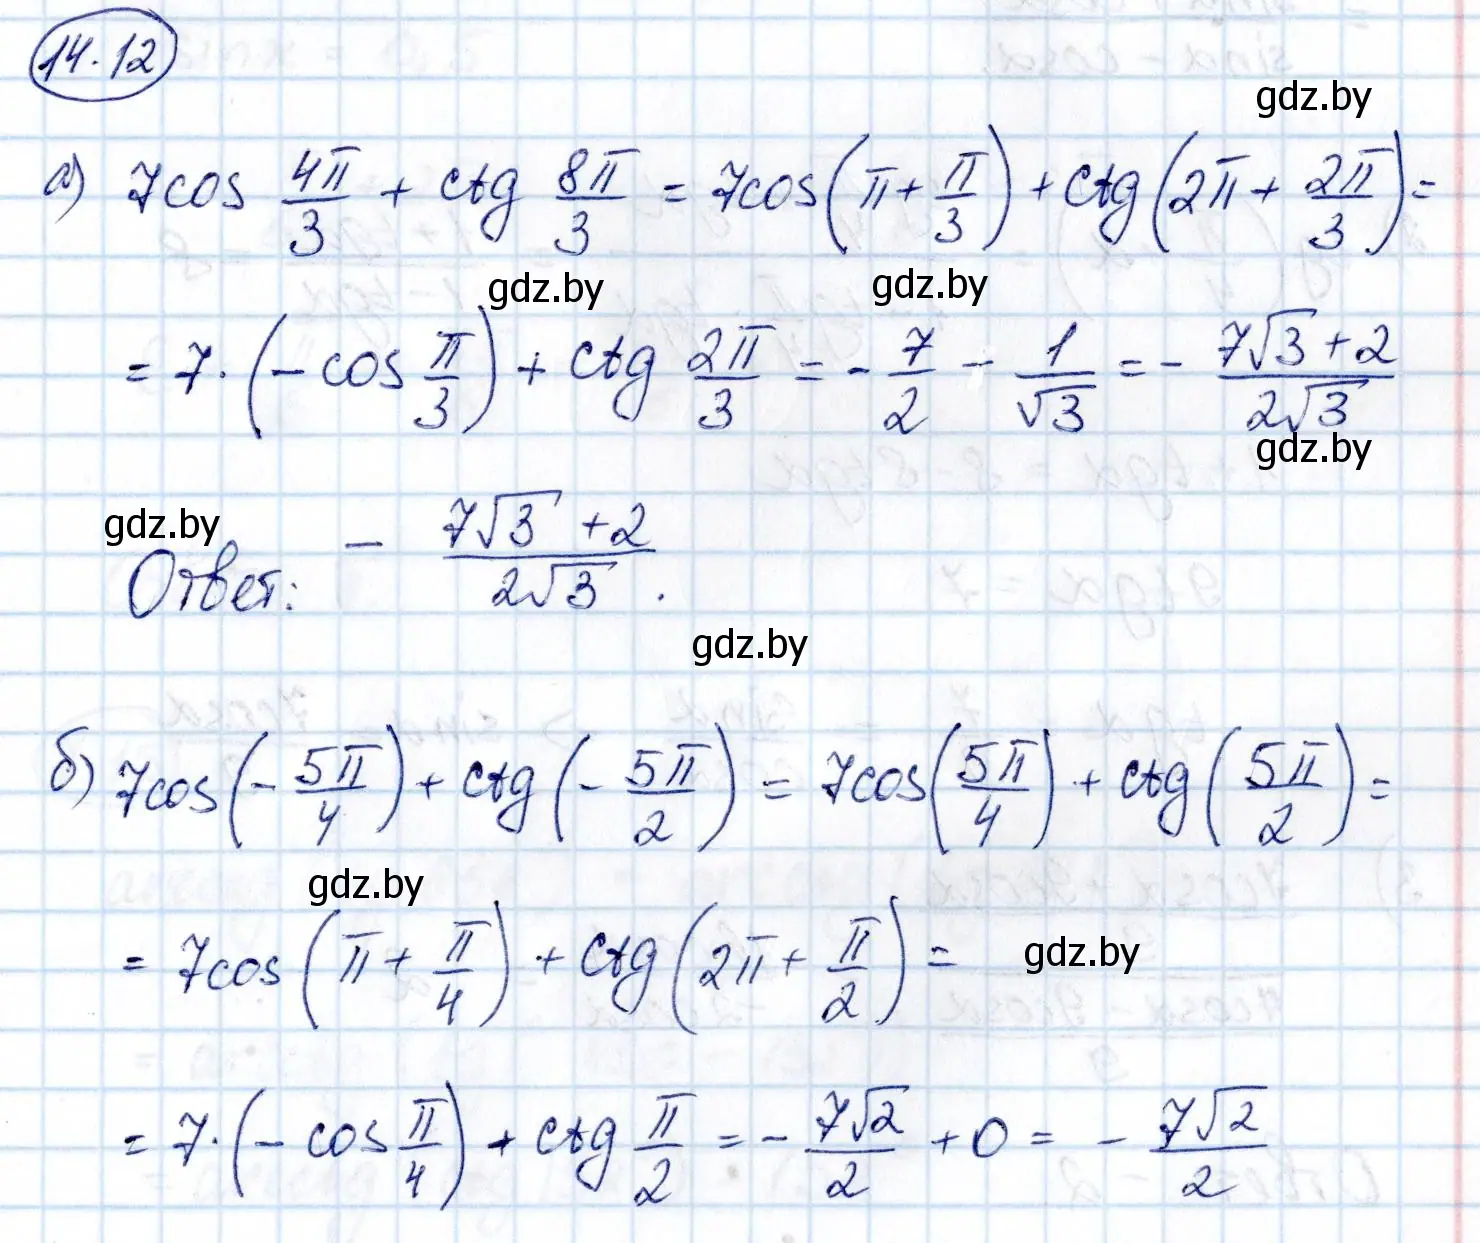 14.12
gdz.by
а) 7cos 4π/3 + ctg 8π/3 = 7cos(π + π/3) + ctg(2π + 2π/3) =
gdz.by gdz.by
= 7·(−cos π/3) + ctg 2π/3 = −7/2 − 1/√3 = − (7√3 + 2)/(2√3)
gdz.by
gdz.by
Ответ: − (7√3 + 2)/(2√3).
gdz.by
б) 7cos(−5π/4) + ctg(−5π/2) = 7cos(5π/4) + ctg(5π/2) =
gdz.by
= 7cos(π + π/4) + ctg(2π + π/2) =
gdz.by
= 7·(−cos π/4) + ctg π/2 = −7√2/2 + 0 = −7√2/2